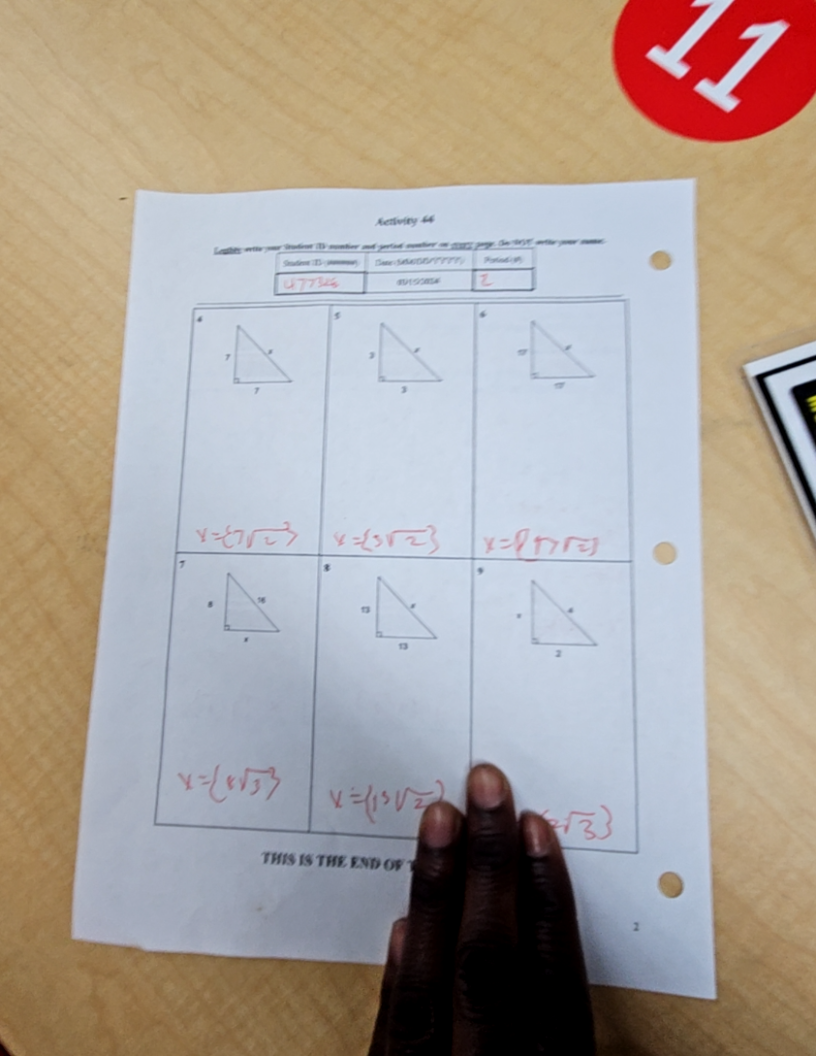 11
Activity 44
Legibly write your Student ID number and period number on every page. Do NOT write your name.
Student ID (######) Date (MM/DD/YYYY) Period (#)
2
4 5 6
7 x 3 x 17 x
7 3 17
x={7√2} x={3√2} x={17√2}
7 8 9
8 16 13 x x 4
x 13 2
x={8√3} x={13√2} 2√3}
THIS IS THE END OF
2